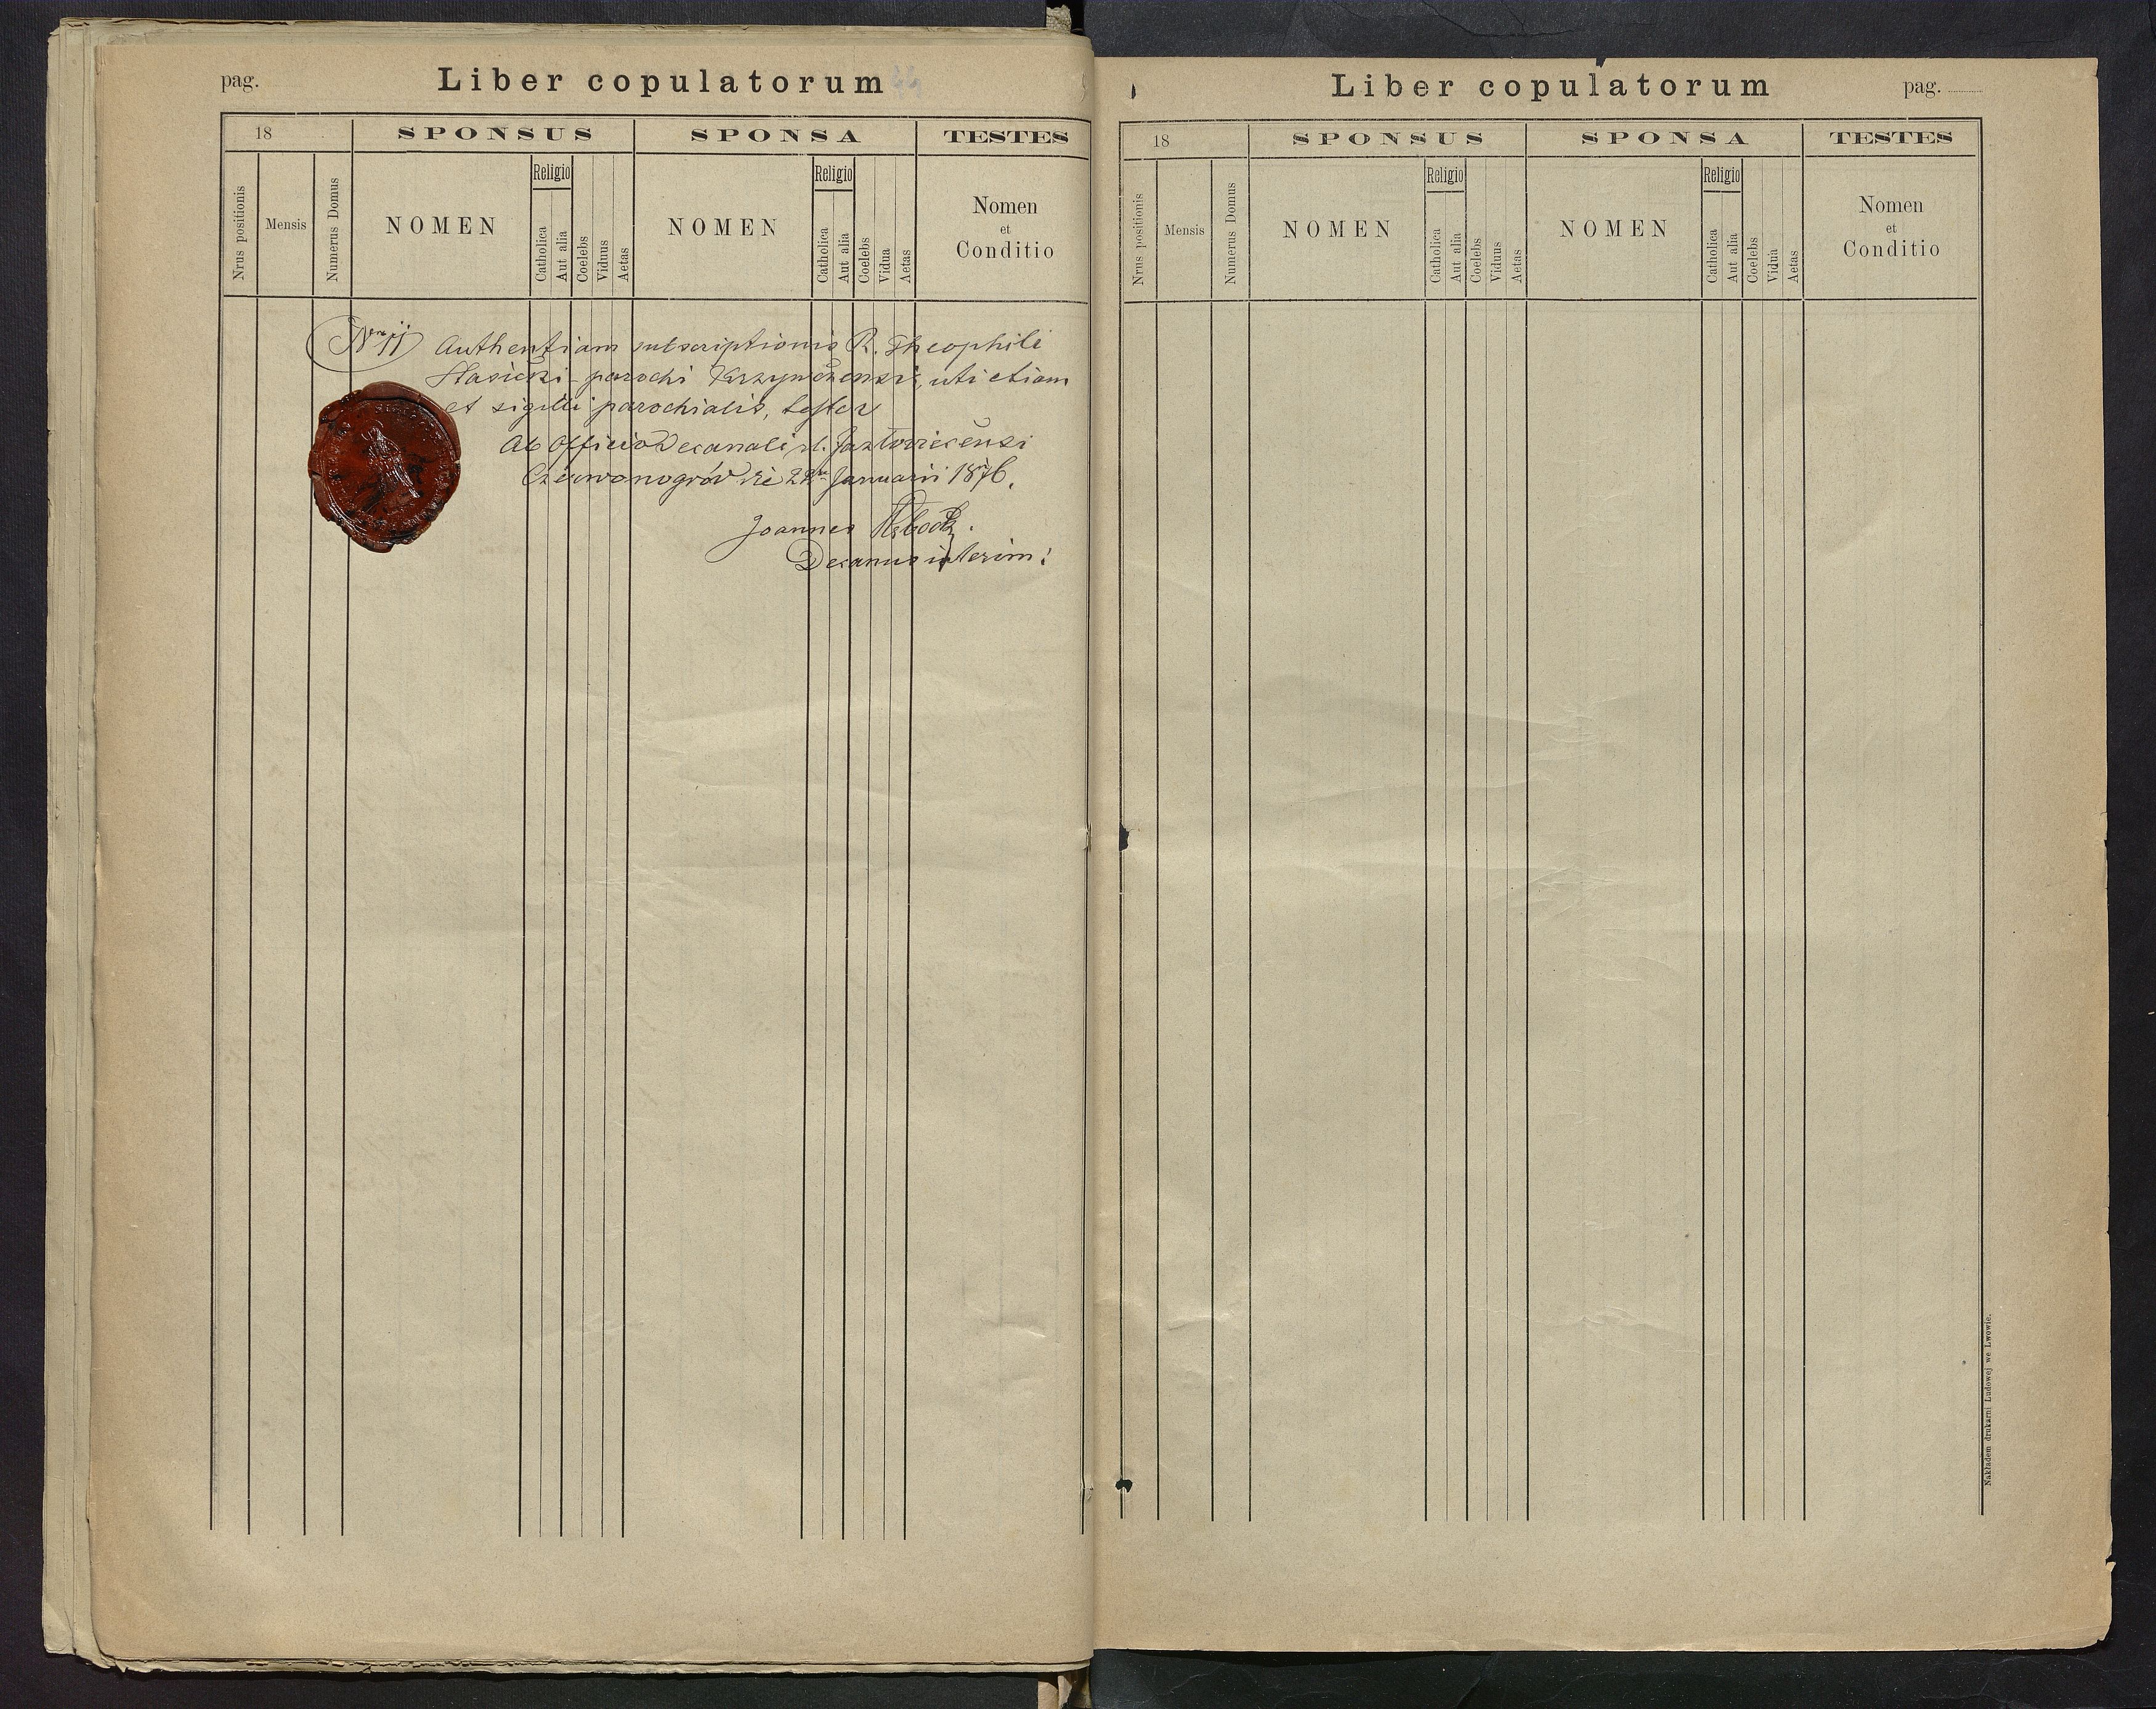 pag.
Liber copulatorum
18
SPONSUS
SPONSA
TESTES
Nrus positionis
Mensis
Numerus Domus
NOMEN
Religio
Catholica
Aut alia
Coelebs
Viduus
Aetas
NOMEN
Religio
Catholica
Aut alia
Coelebs
Vidua
Aetas
Nomen
et
Conditio
Authentiam subscriptionis R. Theophili
parochi uti etiam
et sigilli parochialis, testor
Ab Officio Decanali
Czerwonogród die Januarii 1876.
Joannes
Decanus interim
Liber copulatorum
pag.
18
SPONSUS
SPONSA
TESTES
Nrus positionis
Mensis
Numerus Domus
NOMEN
Religio
Catholica
Aut alia
Coelebs
Viduus
Aetas
NOMEN
Religio
Catholica
Aut alia
Coelebs
Vidua
Aetas
Nomen
et
Conditio
Nakładem drukarni Ludowej we Lwowie.